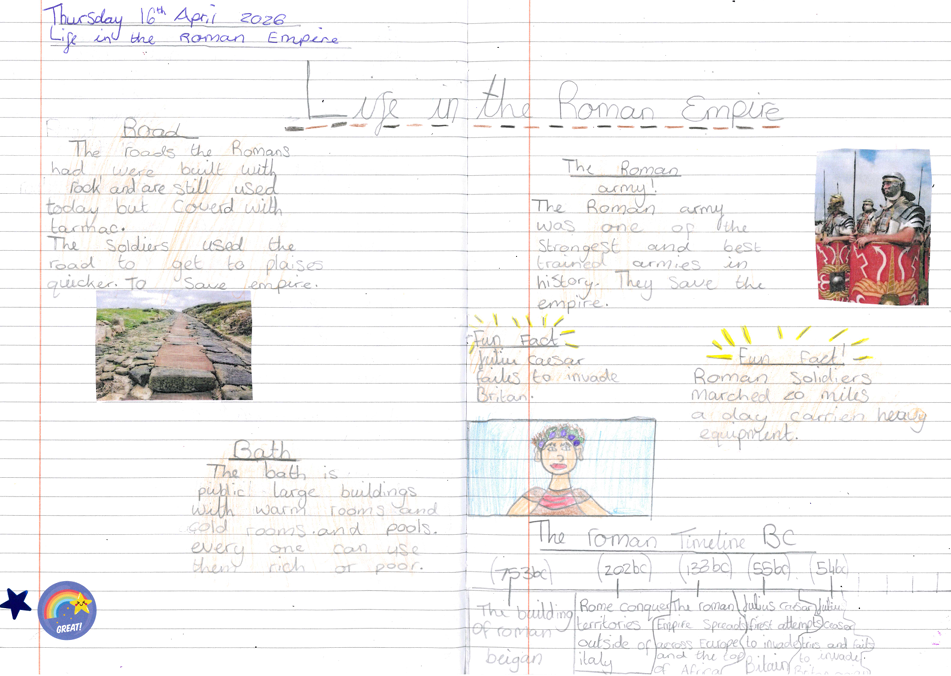 Thursday 16th April 2026
Life in the Roman Empire
Life in the Roman Empire
Road
The roads the Romans
had were built with
rock and are still used
today but Coverd with
tarmac.
The Soldiers used the
road to get to plaises
quicker. To save empire.
Bath
The bath is
public large buildings
with warm rooms and
cold rooms and pools.
every one can use
them rich or poor.
GREAT!
The Roman
army!
The Roman army
was one of the
strongest and best
trained armies in
history. They save the
empire.
Fun Fact
Caesar
failes to invade
Britan.
Fun Fact!
Roman Soldiers
marched 20 miles
a day carrien heavy
equipment.
The roman Timeline BC
(753bc)
The building
of roman
beigan
(202bc)
Rome conquer
territories
outside of
italy
(133bc)
The roman
Empire Spreads
across Europe
and the
of Africa
(55bc)
Julius Caesar
first attempts
to invade
Britain
(54bc)
Caesar
tries and fails
to invade